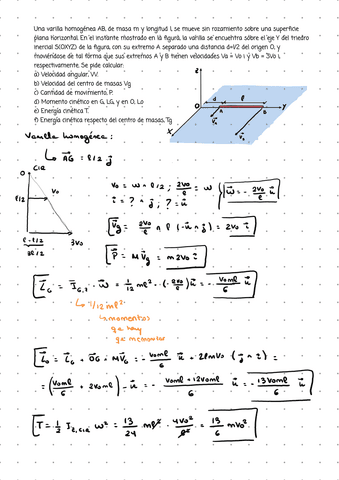 Una varilla homogénea AB, de masa m y longitud l, se mueve sin rozamiento sobre una superficie
plana horizontal. En el instante mostrado en la figura, la varilla se encuentra sobre el eje Y del triedro
inercial S{OXYZ} de la figura, con su extremo A separado una distancia d=l/2 del origen O, y
moviéndose de tal forma que sus extremos A y B tienen velocidades Va = Vo i y Vb = 3Vo i,
respectivamente. Se pide calcular:
a) Velocidad angular, W.
b) Velocidad del centro de masas Vg
c) Cantidad de movimiento, P.
d) Momento cinético en G, LG, y en O, Lo
e) Energía cinética T.
f) Energía cinética respecto del centro de masas, Tg
z
d
l
O
A
B
y
V₀
V₀
x
Varilla homogénea:
AG = l/2 j
CIR
O
l/2
V₀
l+l/2
3l/2
3V₀
V₀ = ω · l/2 ; 2V₀/l = ω
ω = - 2V₀/l k
i = ? ∧ j ; ? = k
Vg = 2V₀/l ∧ l (-k ∧ j) = 2V₀ i
P = M Vg = m 2V₀ i
L_G = I_G,z · ω = 1/12 ml² · (- 2V₀/l) k = - V₀ml/6 k
1/12 ml²
momentos
que hay
que memorizar
L₀ = L_G + OG ∧ MV_G = - V₀ml/6 k + 2lmV₀ (j ∧ i) =
= (V₀ml/6 + 2V₀ml) - k = - V₀ml + 12V₀ml/6 k = - 13V₀ml/6 k
T = 1/2 I_z,CIR ω² = 13/24 ml² · 4V₀²/l² = 13/6 mV₀²